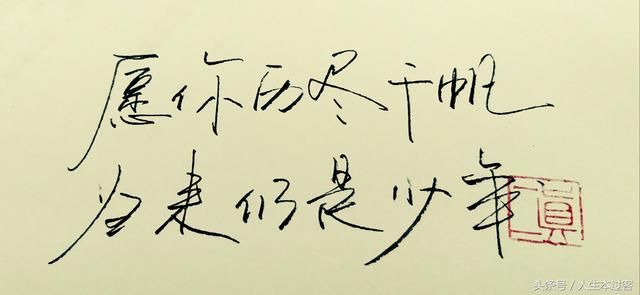 愿你历尽千帆
归来仍是少年
头条号／人生本过客